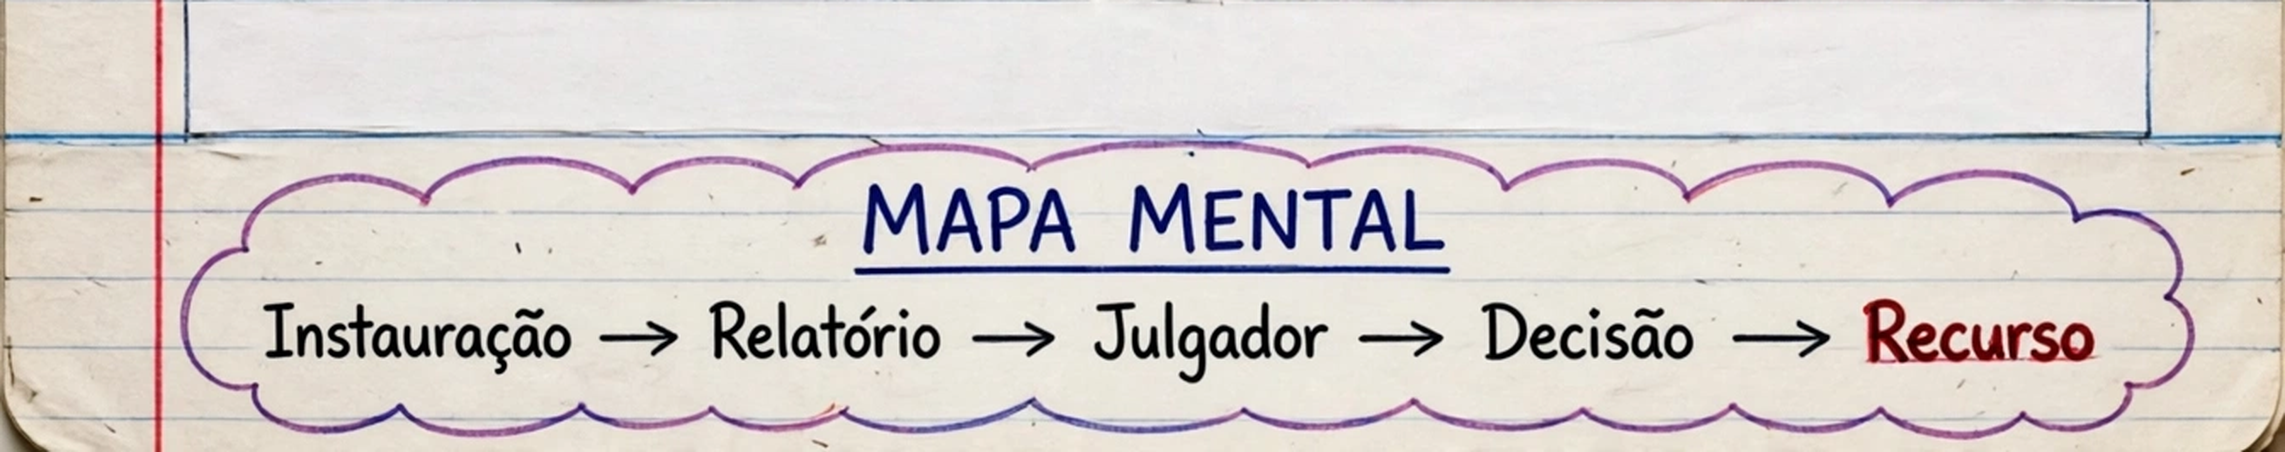 MAPA MENTAL
Instauração → Relatório → Julgador → Decisão → Recurso